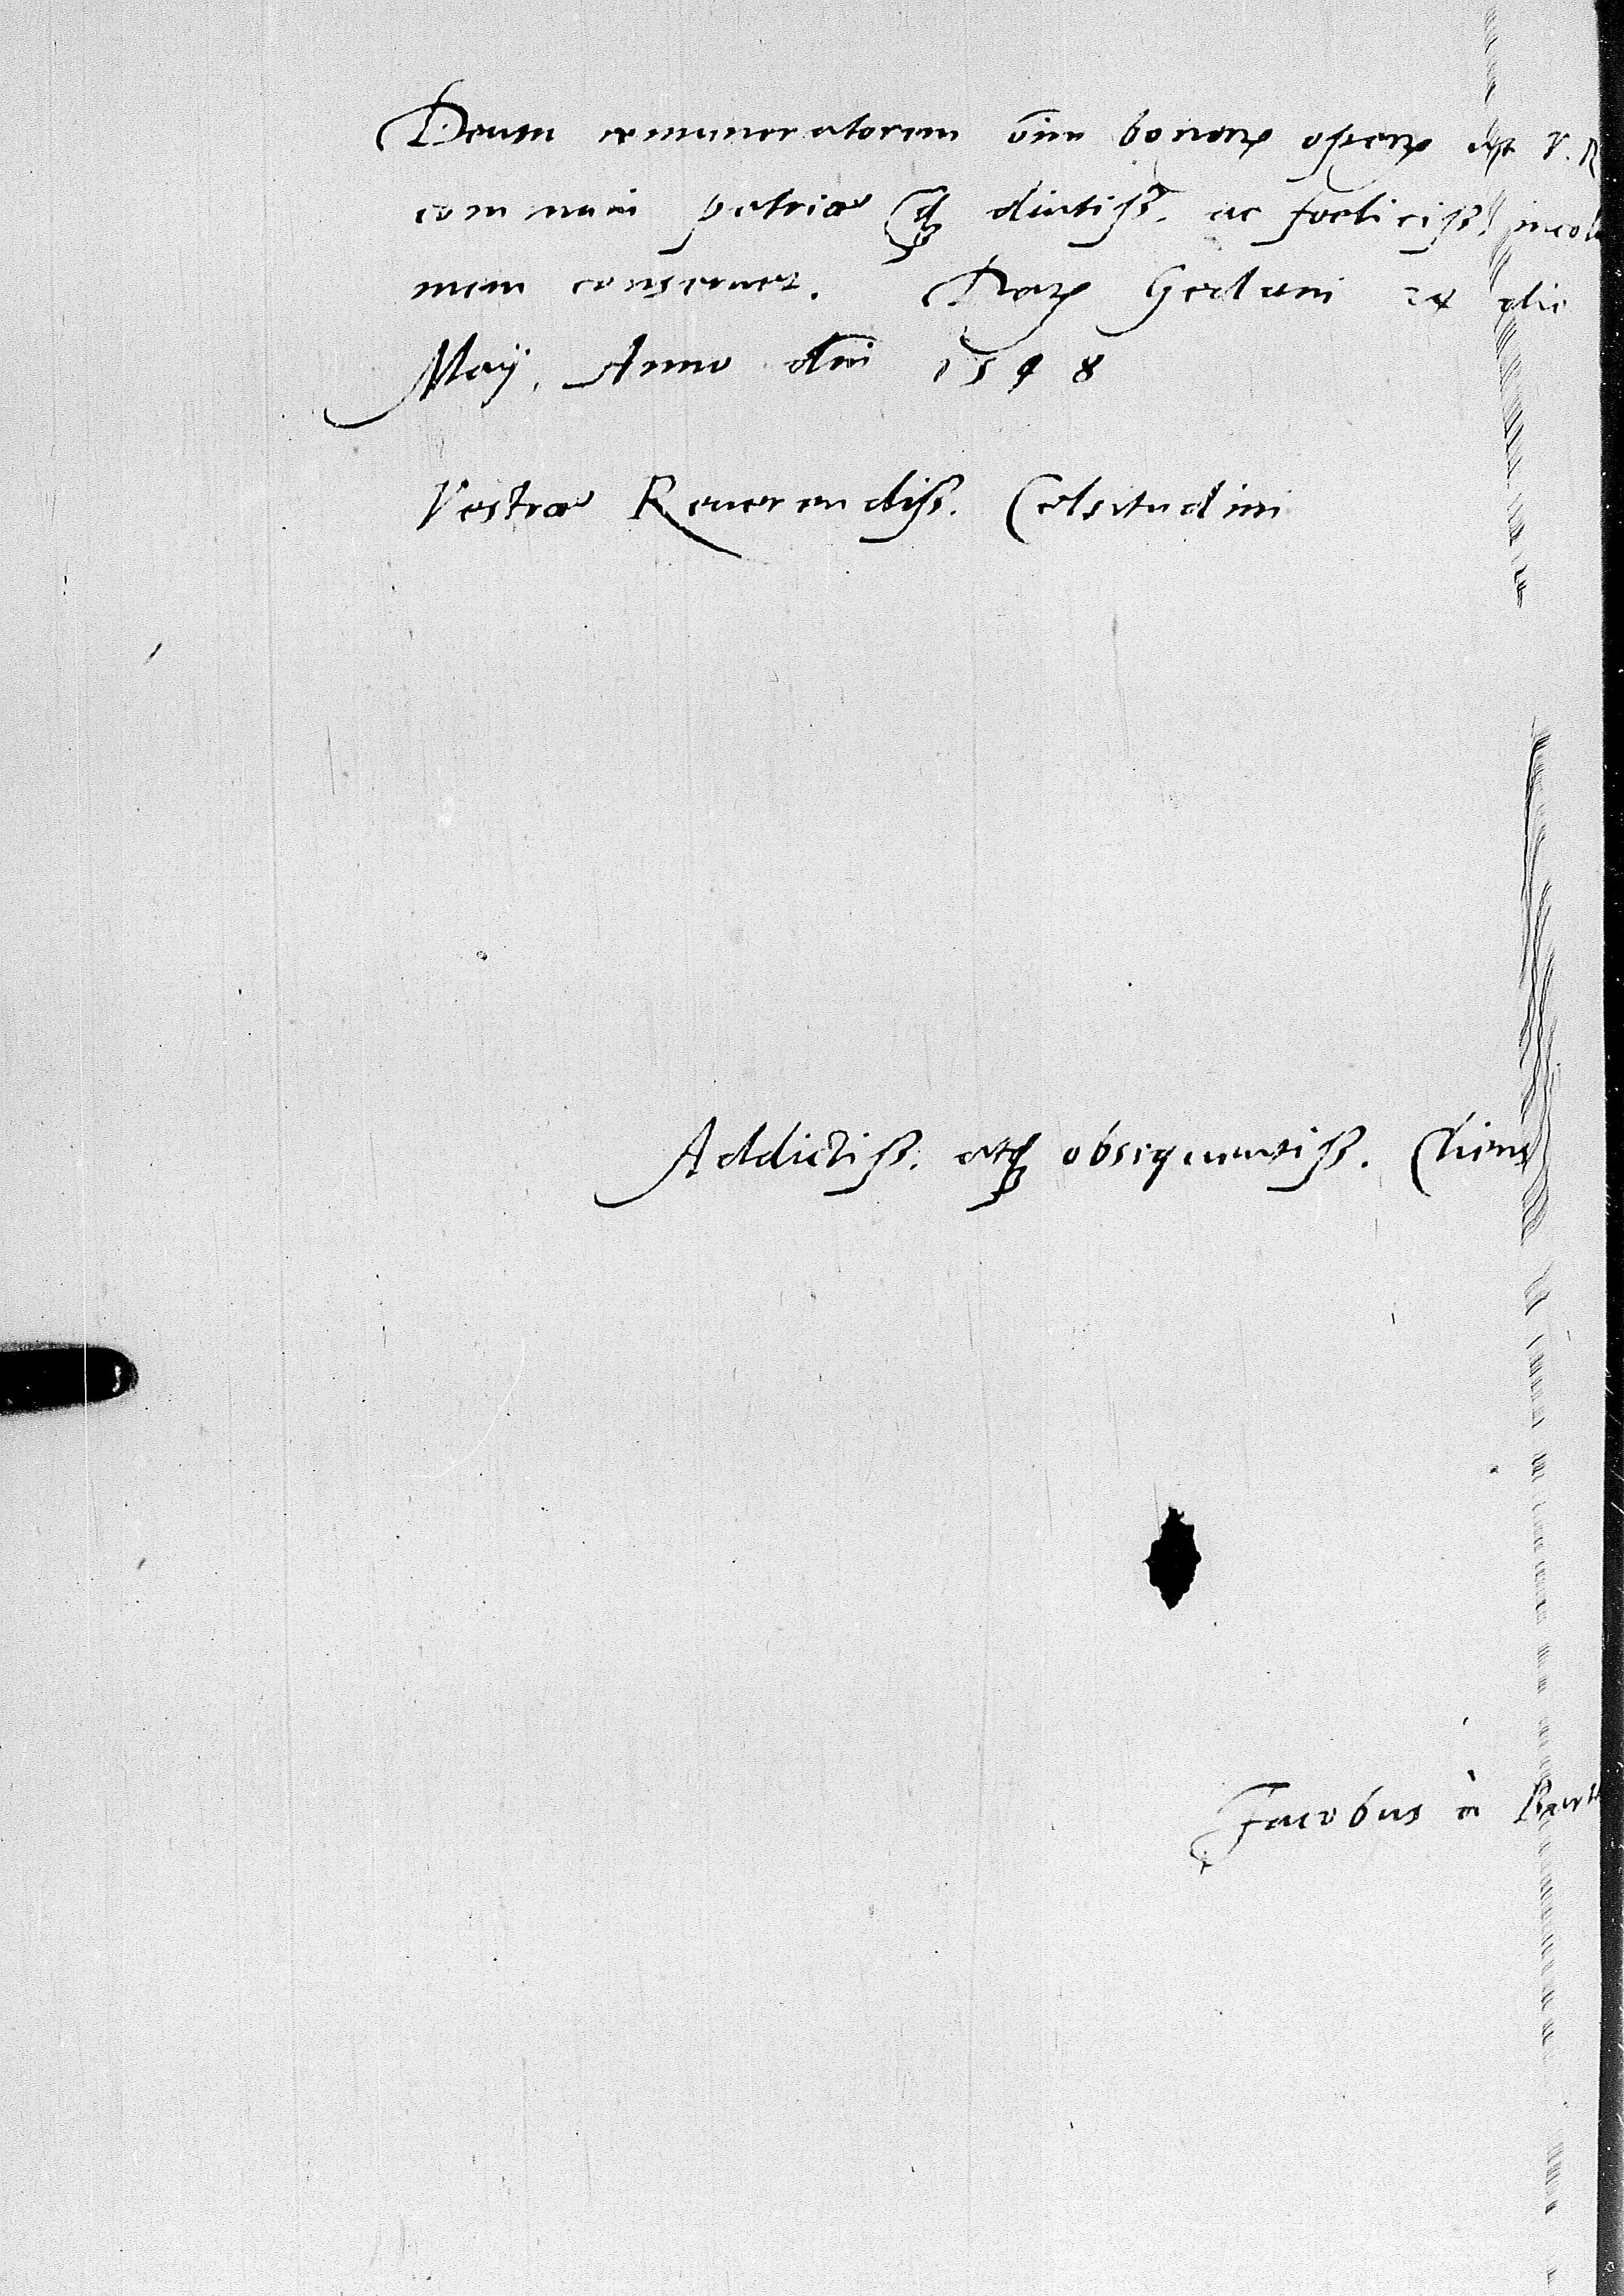 Deum remuneratorem oīm bonorꝝ operꝝ ut V. R
communi patriæ qꝫ diutiss. ac foeliciss. incolu
mem conseruet. Datꝝ Gedani die
Maij, Anno dni 1548
Vestræ Reuerendiss. Celsitudini
Addictiss. atqꝫ obsequentiss. Cliens
Jacobus à